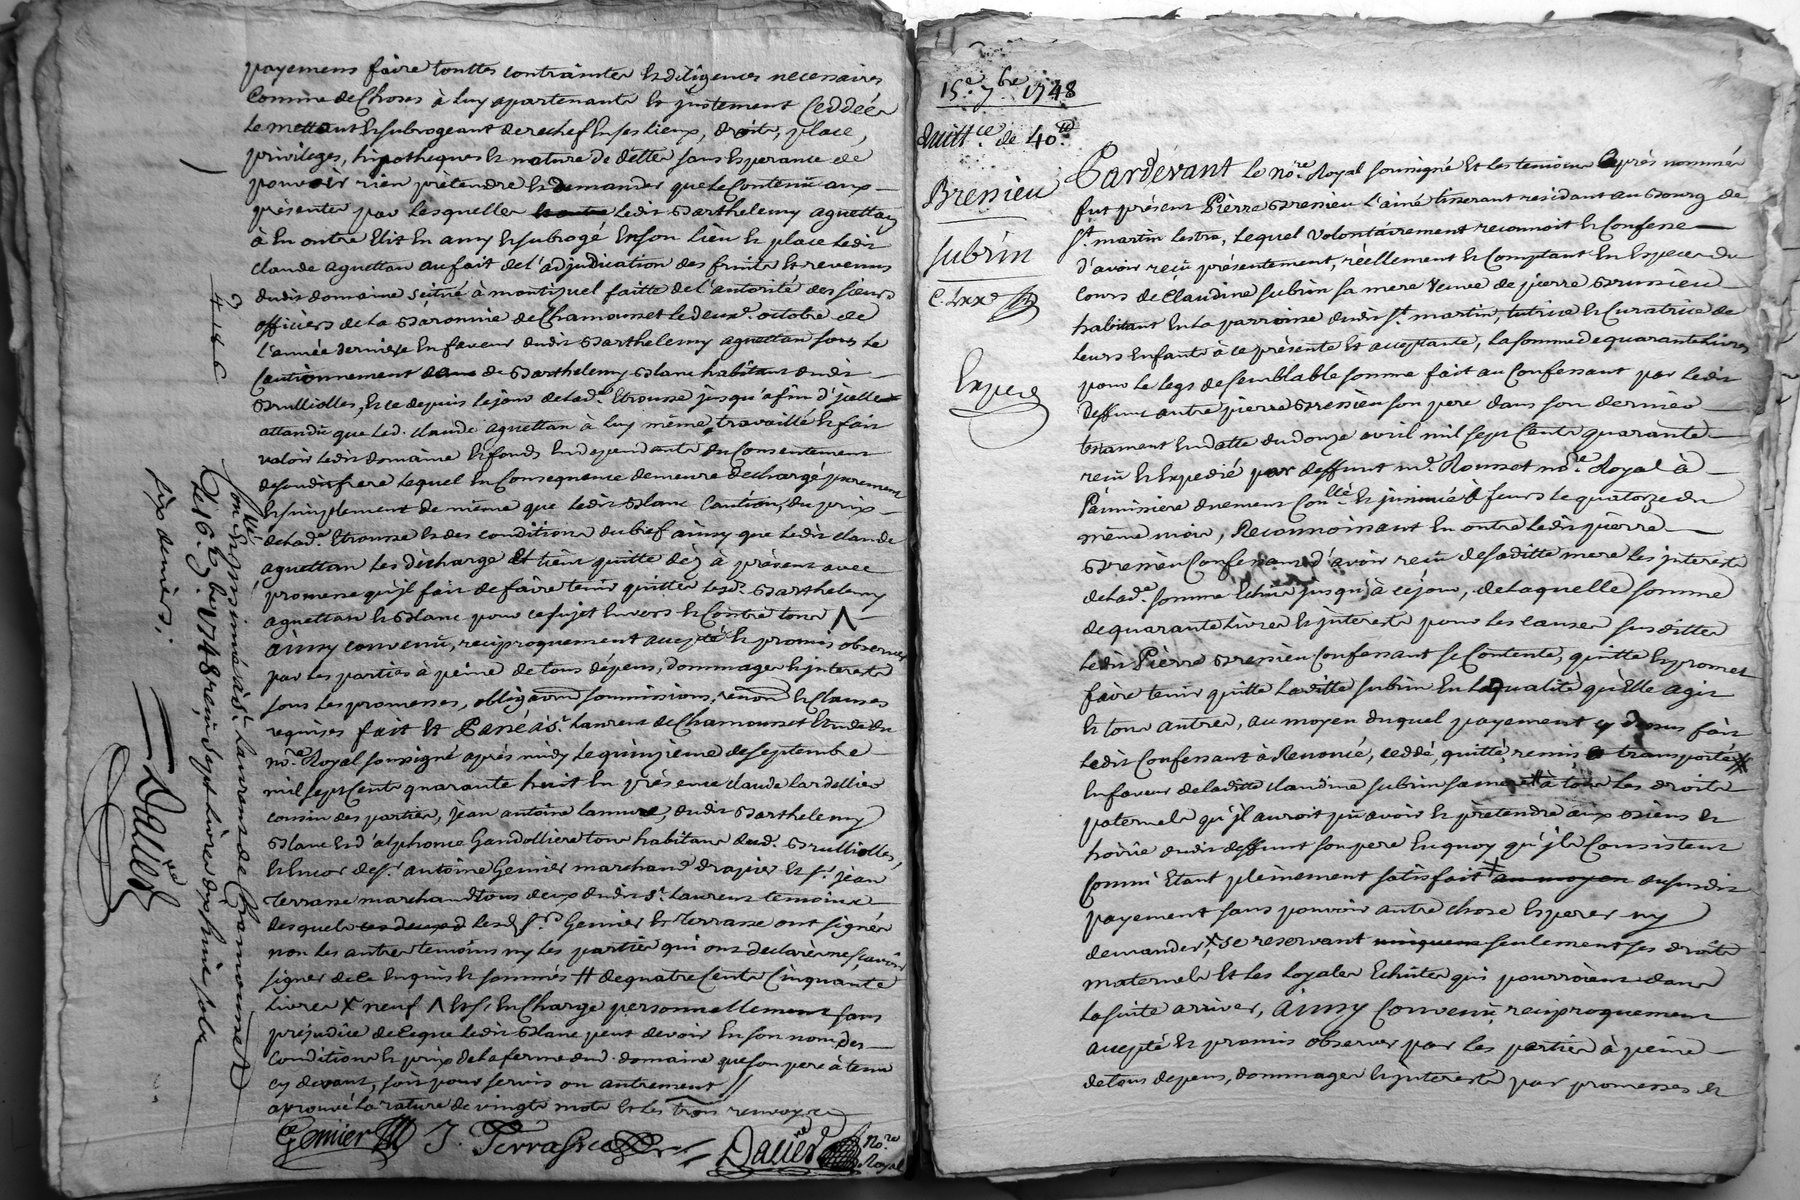 payemens faire touttes contraintes et diligences necessaires
Comme de Choses à luy apartenante et justement Ceddéée
le mettant et subrogeant derechef en ses lieux, droits, place,
privileges, hipotheques et nature de dette sans Esperance de
pouvoir rien prètendre et demander que le Contenu aux
présentes par lesquelles ledit Barthelemy aguettan
à En outre Elit En amy et subrogé En son lieu et place ledit
claude aguettan au fait de l'adjudication des fruits et revenus
dudit domaine scitué à montizuel faitte de l'autorité des sieurs
officiers de la Baronnie de Chamousset le deuxe. octobre de
l'année derniere En faveur dudit Barthelemy aguettan sous le
Cautionnement de Barthelemy Blanc habitant dudit
Brulliolles, et ce depuis le jour de lad.e Etrousse jusqu'à fin d'icelle
attandu que led. claude aguettan à luy même travaillé et fait
valoir ledit domaine et fonds Independants du Consentement
de sondit frere lequel En Consequence demeure dechargé purement
et simplement de même que ledit Blanc Caution, du prix
de lad.e Etrousse et des conditions du bief ainsy que ledit claude
aguettan les decharge Et tient quitte dèz à présent avec
promesse qu'il fait de faire tenir quitter lesd. Barthelemy
aguettan et Blanc pour ce sujet Envers et Contre tous Λ
Ainsy convenu, reciproquement accepté et promis observer
par les parties à peine de tous dépens, dommages et interests
sous les promesses, obligaons soumissions, renons et Clauses
requises fait et Passé à St. Laurent de Chamousset Etude du
no.re Royal soussigné après midy le quinzieme de septembre
mil sept Cents quarante huit En présence claude Lardellier
cousin des parties, jean antoine Lamure, dudit Barthelemy
Blanc et d'alphonce Gandolliere tous habitans dud. Brulliolles,
et Encor de Sr. antoine Gemier marchand drapier et Sr. Jean
Terrasse marchand tous deux dudit St. Laurent temoins
desquels les d. Srs Gemier et Terrasse ont signés
non les autres temoins ny les parties qui ont declarés ne sçavoir
signer de ce Enquis et sommés # de quatre Cents Cinquante
livres X neuf Λ Et s'En Charge personnellement sans
préjudice de ce que ledit Blanc peut devoir En son nom des
Conditions et prix de la ferme dud. domaine que son pere à tenu
cy devant, soit pour servis ou autrement //
aprouvé la rature de vingts mots et les trois renvoys
Gemier J. Terrasse Dalier No.re Royal
Con.llé et jnsinué à St. Laurent de Chamousset
Le 16. 7bre 1748 reçu sept livres dix huit sols
six deniers.
Dalier
15.e 7.bre 1748
Quitt.ce de 40.tt
Bressieu
Subrin
Expes
Pardevant le no.re Royal soussigné Et les temoins après nommés
fut présent Pierre Bressieu l'ainé tisserant residant au Bourg de
St. martin lestra, lequel volontairement reconnoit et Confesse
d'avoir reçu présentement, réellement et Comptant En Especes du
Cours de Claudine subrin sa mere veuve de pierre Bressieu
habitant En la parroisse dudit St. martin, tutrice et Curatrice de
leurs Enfants à ce présente Et acceptante, la somme de quarante livres
pour le legs de semblable somme fait au Confessant par ledit
deffunt autre pierre Bressieu son pere dans son dernier
testament En datte du douze avril mil sept Cents quarante
reçu et Expedié par deffunt m.e Rousset no.re Royal à
Pannissiere duement Con.llé Et jnsinué à feurs le quatorze du
même mois, Reconnoissant En outre ledit pierre
Bressieu Confessant d'avoir reçu de saditte mere les jnterests
de lad.e somme Echus jusqu'à ce jour, de laquelle somme
de quarante livres et jnterests pour les causes susdittes
ledit Pierre Bressieu Confessant se Contente, quitte et promet
faire tenir quitte laditte subrin En la qualité qu'Elle agit
et tous autres, au moyen duquel payement cy dessus fait
ledit Confessant à Renoncé, ceddé, quitté, remis, et transporté #
En faveur de laditte claudine subrin sa mere à tous les droits
paternels qu'jl auroit pû avoir et prètendre aux biens et
hoirie dudit deffunt son pere En quoy qu'jls Consistent
Comm' Etant pleinement satisfait au moyen du susdit
payement sans pouvoir autre chose Esperer ny
demander, se reservant seulement ses droits
maternels Et les loyales Echutes qui pourroient dans
la suite arriver, Ainsy Convenu, reciproquement
accepté et promis observer par les parties à peine
de tous depens, dommages et jnterests par promesses et